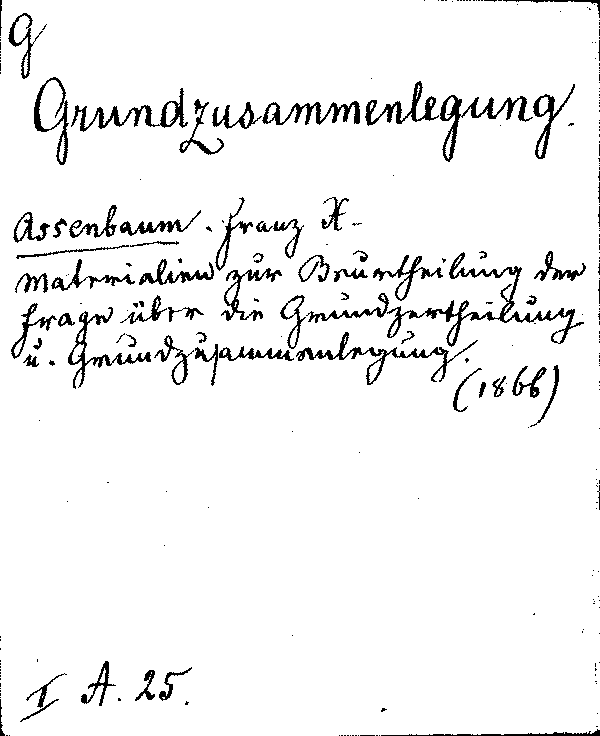 G
Grundzusammenlegung.
Assenbaum. Franz X.
Materialien zur Beurtheilung der
Frage über die Grundzertheilung
u. Grundzusammenlegung.
(1866)
I A. 25.